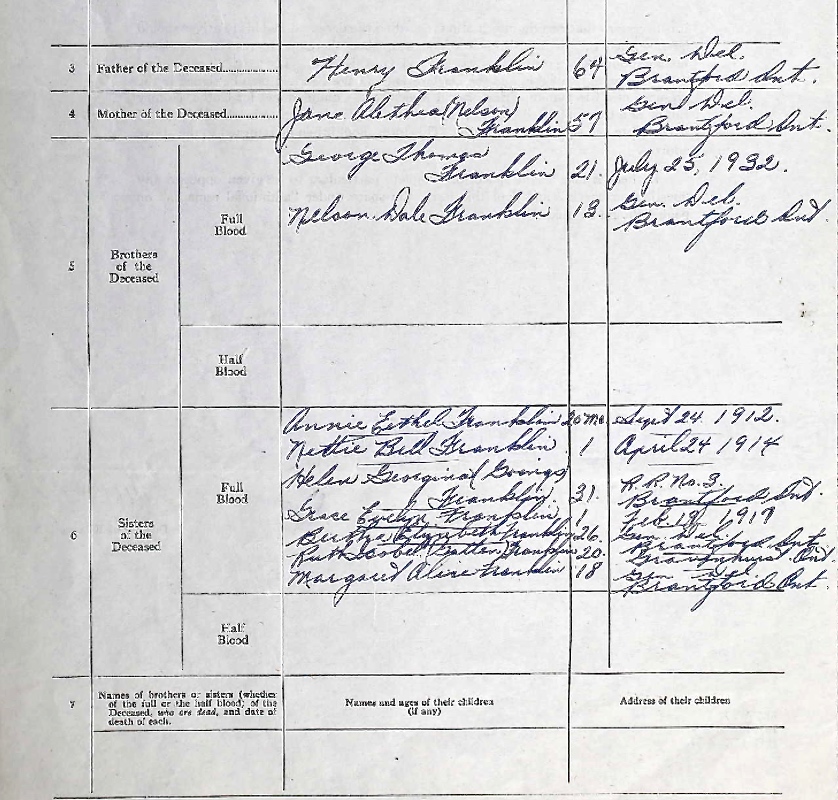 3 Father of the Deceased.............. Henry Franklin 64 Gen. Del.
Brantford Ont.
4 Mother of the Deceased.............. Jane Alethea (Nelson)
Franklin 57 Gen Del.
Brantford Ont.
5 Brothers
of the
Deceased
Full
Blood
George Thomas
Franklin 21. July 25, 1932.
Nelson Dale Franklin 13. Gen. Del.
Brantford Ont
Half
Blood
6 Sisters
of the
Deceased
Full
Blood
Annie Eethel Franklin 20 mo. Sept 24. 1912.
Nettie Bell Franklin 1 April 24 1914
Helen Georgina
Franklin. 31. R.R. No. 3.
Brantford Ont.
Grace Evelyn Franklin 1 Feb. 1917
Bertha Elizabeth Franklin 26. Gen. Del.
Brantford Ont
Ruth Isobel (Patten) Franklin 20. Gravenhurst Ont.
Margaret Alice Franklin 18 Gen Del.
Brantford Ont.
Half
Blood
7 Names of brothers or sisters (whether
of the full or the half blood) of the
Deceased, who are dead, and date of
death of each.
Names and ages of their children
(if any)
Address of their children